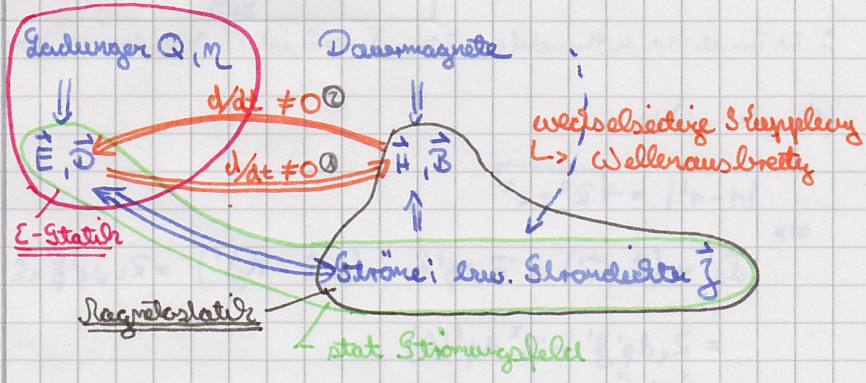 Ladungen Q, η
Dauermagnete
d/dt ≠ 0 ②
wechselseitige Kupplung
↳ Wellenausbreitg
E⃗, D⃗
d/dt ≠ 0 ①
H⃗, B⃗
E-Statik
Ströme i bzw. Stromdichte J⃗
Magnetostatik
stat Strömungsfeld